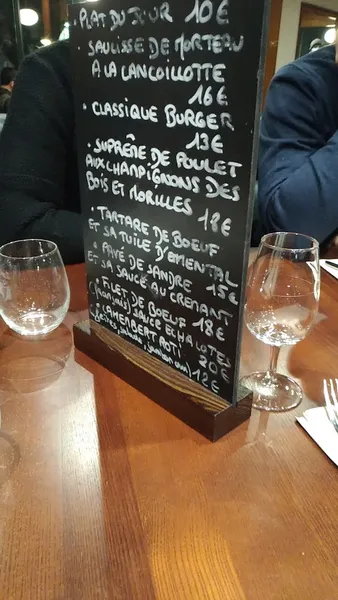 PLAT DU JOUR 10€
SAUCISSE DE MORTEAU
A LA CANCOILLOTTE
16€
• CLASSIQUE BURGER
13€
• SUPRÊME DE POULET
AUX CHAMPIGNONS DES
BOIS ET MORILLES 18€
• TARTARE DE BOEUF
ET SA TUILE D'EMENTAL
• PAVÉ DE SANDRE 15€
ET SA SAUCE AU CREMANT
• FILET DE BOEUF 18€
(français) SAUCE ECHALOTES
• CAMEMBERT ROTI 20€
12€